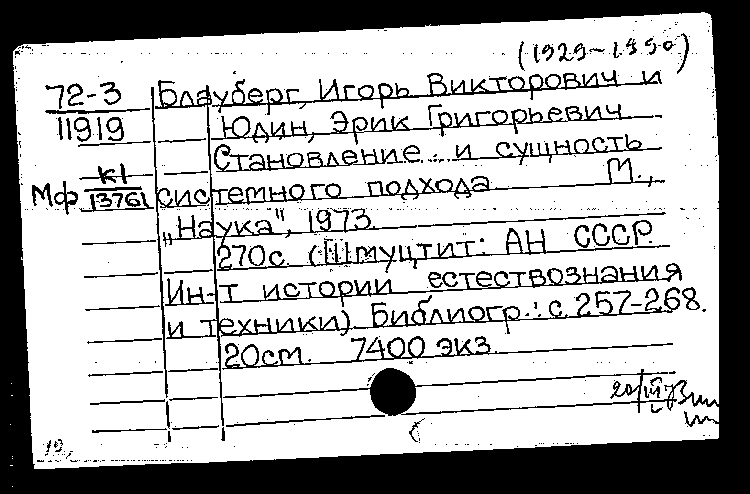 (1929-1990)
72-3 Блауберг, Игорь Викторович и
11919 Юдин, Эрик Григорьевич
Становление и сущность
Мф К1/13761 системного подхода М.,
"Наука", 1973.
270с. (Шмуцтит: АН СССР.
Ин-т истории естествознания
и техники). Библиогр.: с. 257-268.
20см. 7400 экз.
19,